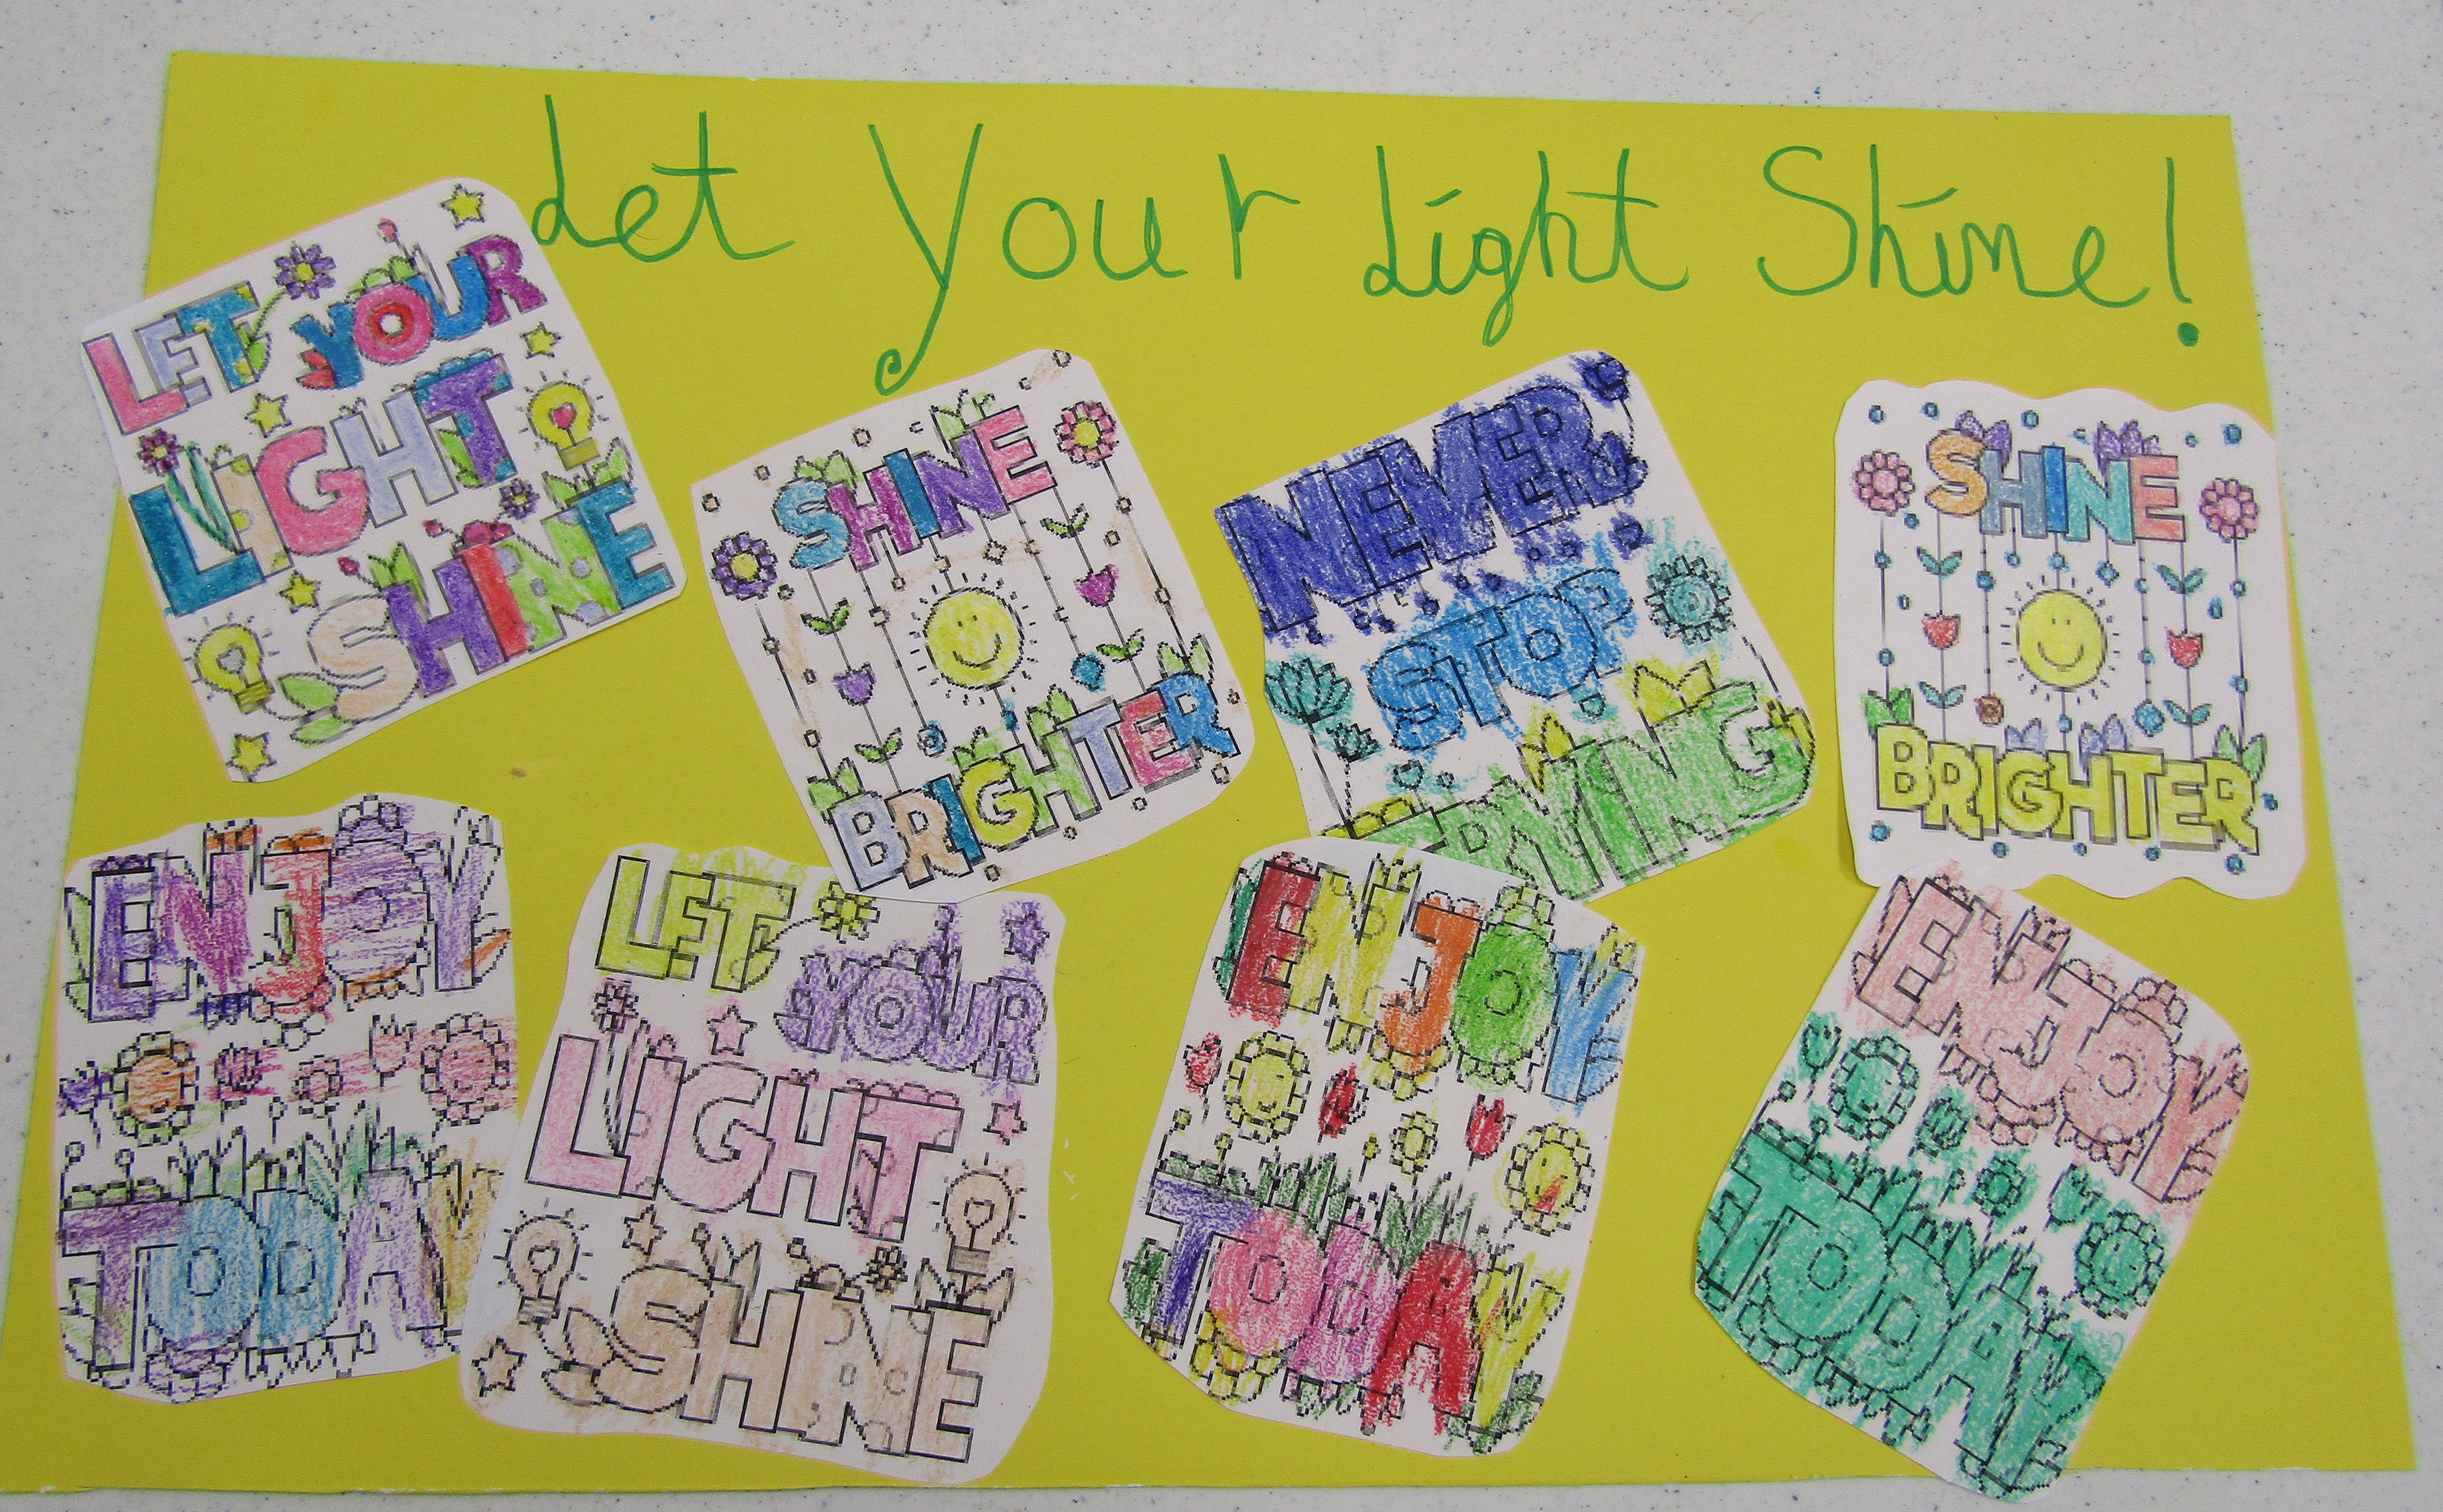 Let Your Light Shine!
LET YOUR
LIGHT
SHINE
SHINE
BRIGHTER
NEVER
STOP
TRYING
SHINE
BRIGHTER
ENJOY
TODAY
LET
YOUR
LIGHT
SHINE
ENJOY
TODAY
ENJOY
TODAY